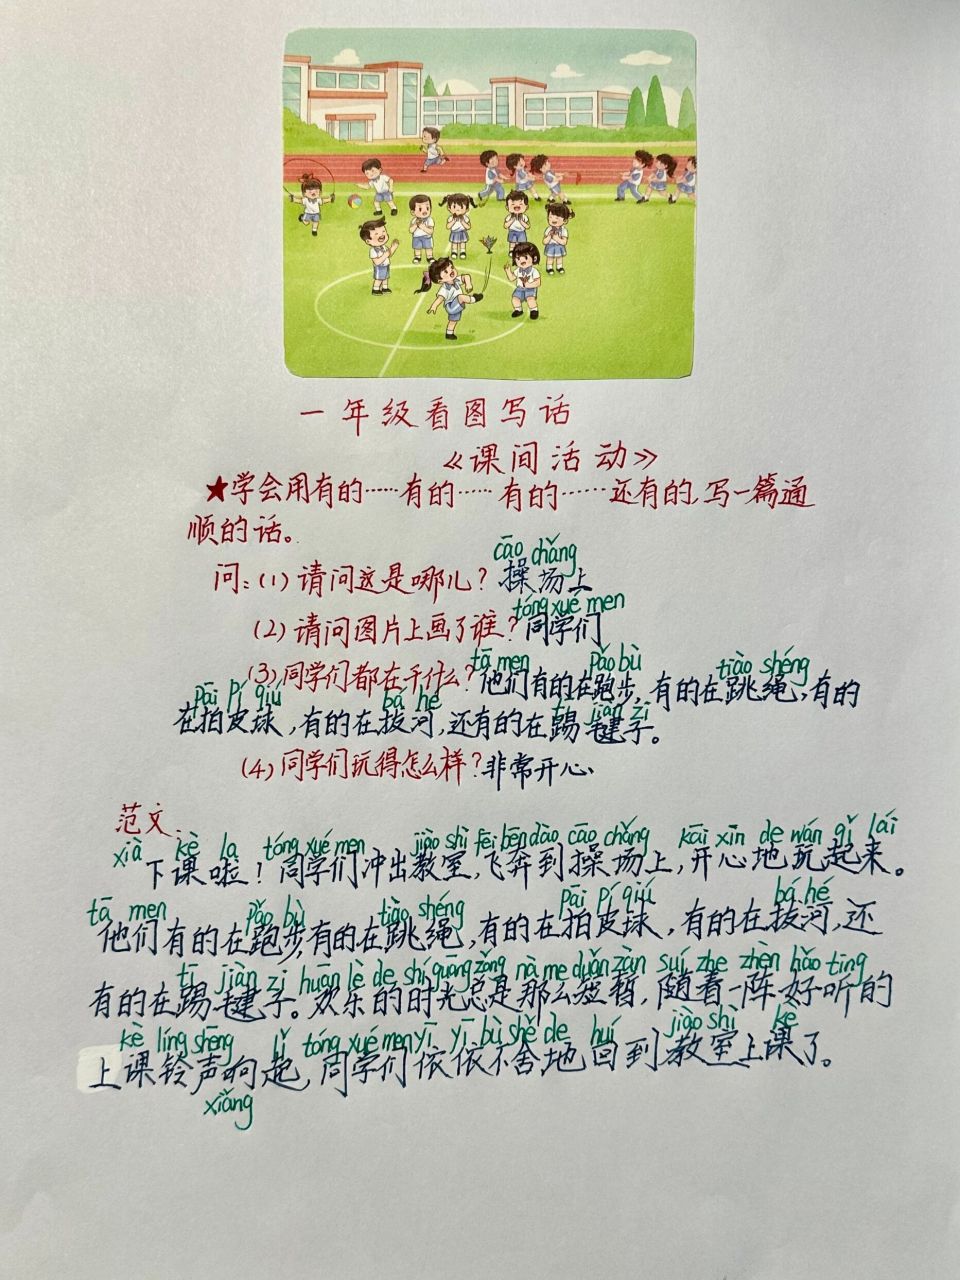 一年级看图写话
《课间活动》
★学会用有的……有的……有的……还有的,写一篇通
顺的话。
cāo chǎng
问:(1)请问这是哪儿?操场上
tóng xué men
(2)请问图片上画了谁?同学们
tā men pǎo bù tiào shéng
(3)同学们都在干什么?他们有的在跑步,有的在跳绳,有的
pāi pí qiú bá hé tī jiàn zi
在拍皮球,有的在拔河,还有的在踢毽子。
(4)同学们玩得怎么样?非常开心、
范文、
xià kè la tóng xué men jiào shì fēi bēn dào cāo chǎng kāi xīn de wán qǐ lái
下课啦!同学们冲出教室,飞奔到操场上,开心地玩起来。
tā men pǎo bù tiào shéng pāi pí qiú bá hé
他们有的在跑步,有的在跳绳,有的在拍皮球,有的在拔河,还
tī jiàn zi huān lè de shí guāng zǒng nà me duǎn zàn suí zhe zhèn hǎo ting
有的在踢毽子。欢乐的时光总是那么短暂,随着一阵好听的
kè líng shēng lǐ tóng xué men yī yī bù shě de huí jiào shì kè
上课铃声响起,同学们依依不舍地回到教室上课了。
xiǎng